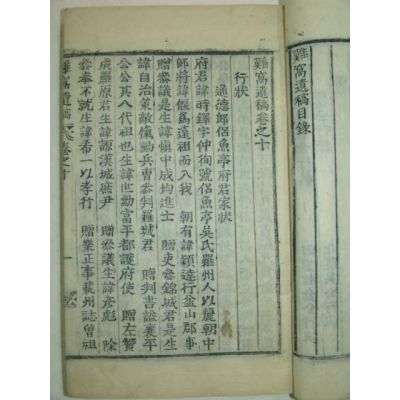 難窩遺稿目錄
難窩遺稿卷之十
行狀
通德郎侶魚亭府君家狀
府君諱時鐸字仲徇號侶魚亭吳氏羅州人以麗朝中
郎將諱偃爲遠祖而入我 朝有諱穎達行益山郡事
贈參議是生諱愼中成均進士 贈吏參錦城君是生
諱自治策敵愾勳兵曹參判羅城君 贈判書諡襄平
公公其八代祖也生諱世勳富平都護府使 贈左贊
成羅原君生諱謙漢城庶尹 贈參議生諱彦彪 除
參奉不就生諱希一以孝行 贈業正事載州誌曾祖
難窩遺稿 卷之十 一